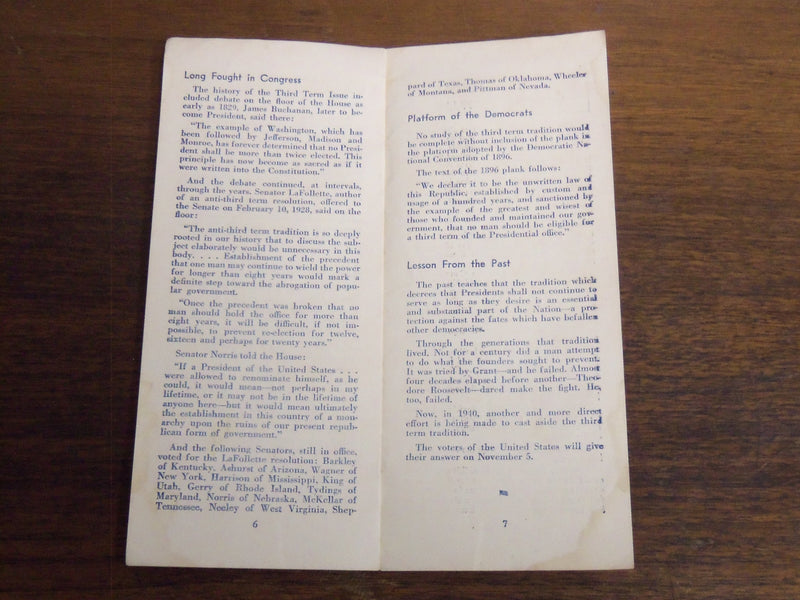 Long Fought in Congress
The history of the Third Term Issue in-
cluded debate on the floor of the House as
early as 1829. James Buchanan, later to be-
come President, said there:
"The example of Washington, which has
been followed by Jefferson, Madison and
Monroe, has forever determined that no Presi-
dent shall be more than twice elected. This
principle has now become as sacred as if it
were written into the Constitution."
And the debate continued, at intervals,
through the years. Senator LaFollette, author
of an anti-third term resolution, offered to
the Senate on February 10, 1928, said on the
floor:
"The anti-third term tradition is so deeply
rooted in our history that to discuss the sub-
ject elaborately would be unnecessary in this
body. . . . Establishment of the precedent
that one man may continue to wield the power
for longer than eight years would mark a
definite step toward the abrogation of popu-
lar government.
"Once the precedent was broken that no
man should hold the office for more than
eight years, it will be difficult, if not im-
possible, to prevent re-election for twelve,
sixteen and perhaps for twenty years."
Senator Norris told the House:
"If a President of the United States . . .
were allowed to renominate himself, as he
could, it would mean—not perhaps in my
lifetime, or it may not be in the lifetime of
anyone here—but it would mean ultimately
the establishment in this country of a mon-
archy upon the ruins of our present repub-
lican form of government."
And the following Senators, still in office,
voted for the LaFollette resolution: Barkley
of Kentucky, Ashurst of Arizona, Wagner of
New York, Harrison of Mississippi, King of
Utah, Gerry of Rhode Island, Tydings of
Maryland, Norris of Nebraska, McKellar of
Tennessee, Neeley of West Virginia, Shep-
6
pard of Texas, Thomas of Oklahoma, Wheeler
of Montana, and Pittman of Nevada.
Platform of the Democrats
No study of the third term tradition would
be complete without inclusion of the plank in
the platform adopted by the Democratic Na-
tional Convention of 1896.
The text of the 1896 plank follows:
"We declare it to be the unwritten law of
this Republic, established by custom and
usage of a hundred years, and sanctioned by
the example of the greatest and wisest of
those who founded and maintained our gov-
ernment, that no man should be eligible for
a third term of the Presidential office."
Lesson From the Past
The past teaches that the tradition which
decrees that Presidents shall not continue to
serve as long as they desire is an essential
and substantial part of the Nation—a pro-
tection against the fates which have befallen
other democracies.
Through the generations that tradition
lived. Not for a century did a man attempt
to do what the founders sought to prevent.
It was tried by Grant—and he failed. Almost
four decades elapsed before another—Theo-
dore Roosevelt—dared make the fight. He,
too, failed.
Now, in 1940, another and more direct
effort is being made to cast aside the third
term tradition.
The voters of the United States will give
their answer on November 5.
7